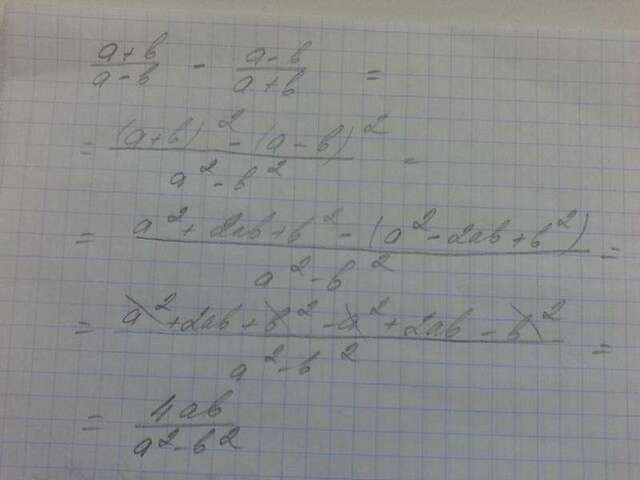 (a+b)/(a-b) - (a-b)/(a+b) =
= ((a+b)² - (a-b)²)/(a²-b²) =
= (a²+2ab+b² - (a²-2ab+b²))/(a²-b²) =
= (a²+2ab+b²-a²+2ab-b²)/(a²-b²) =
= 4ab/(a²-b²)